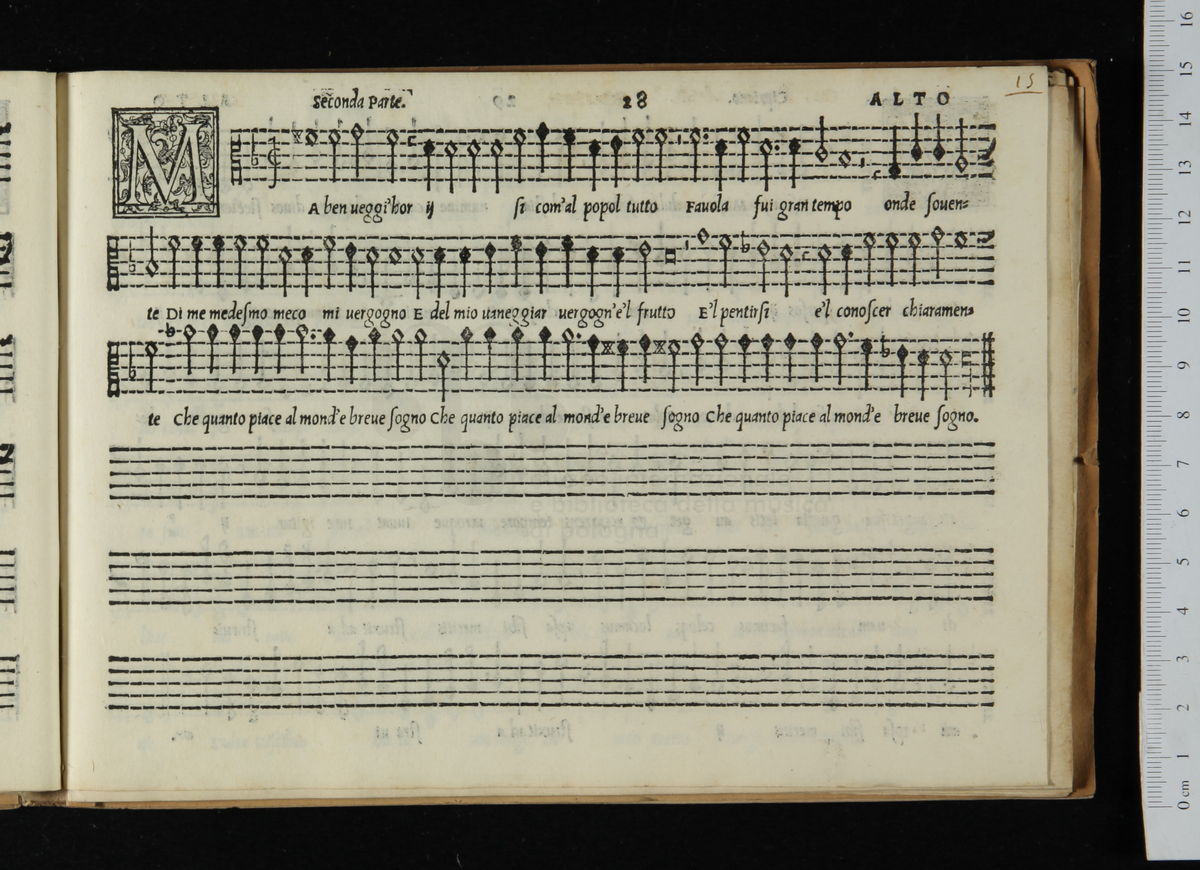 15
Seconda Parte. 28 ALTO
MA ben ueggi'hor ij si com'al popol tutto Fauola fui gran tempo onde souen=
te Di me medesmo meco mi uergogno E del mio uaneggiar uergogn'e'l frutto E'l pentirsi e'l conoscer chiaramen=
te Che quanto piace al mond'e breue sogno Che quanto piace al mond'e breue sogno Che quanto piace al mond'e breue sogno.
e biblioteca della musica
di bologna
16
15
14
13
12
11
10
9
8
7
6
5
4
3
2
1
0 cm